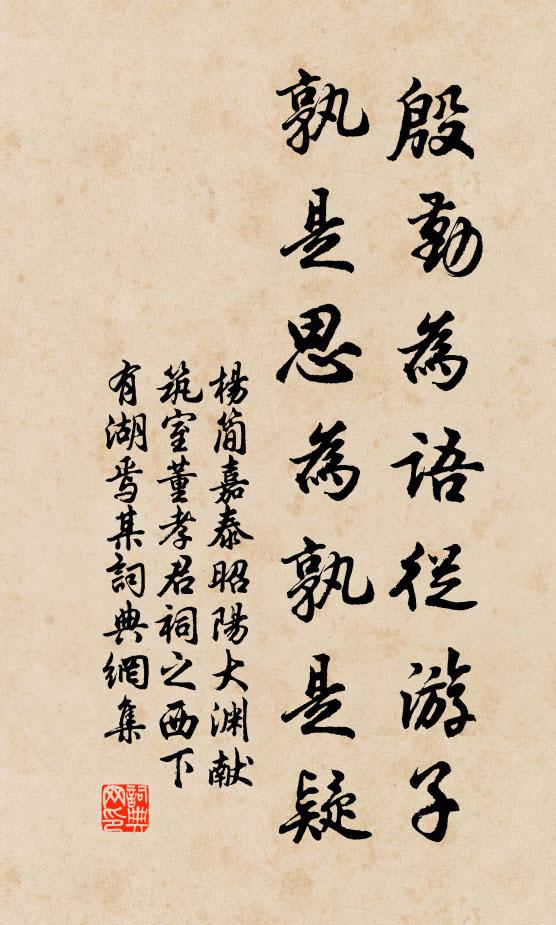 殷勤為語從游子
孰是思為孰是疑
楊簡嘉泰昭陽大淵献
筑室董孝君祠之西下
有湖焉某詞典網集
詞典网印